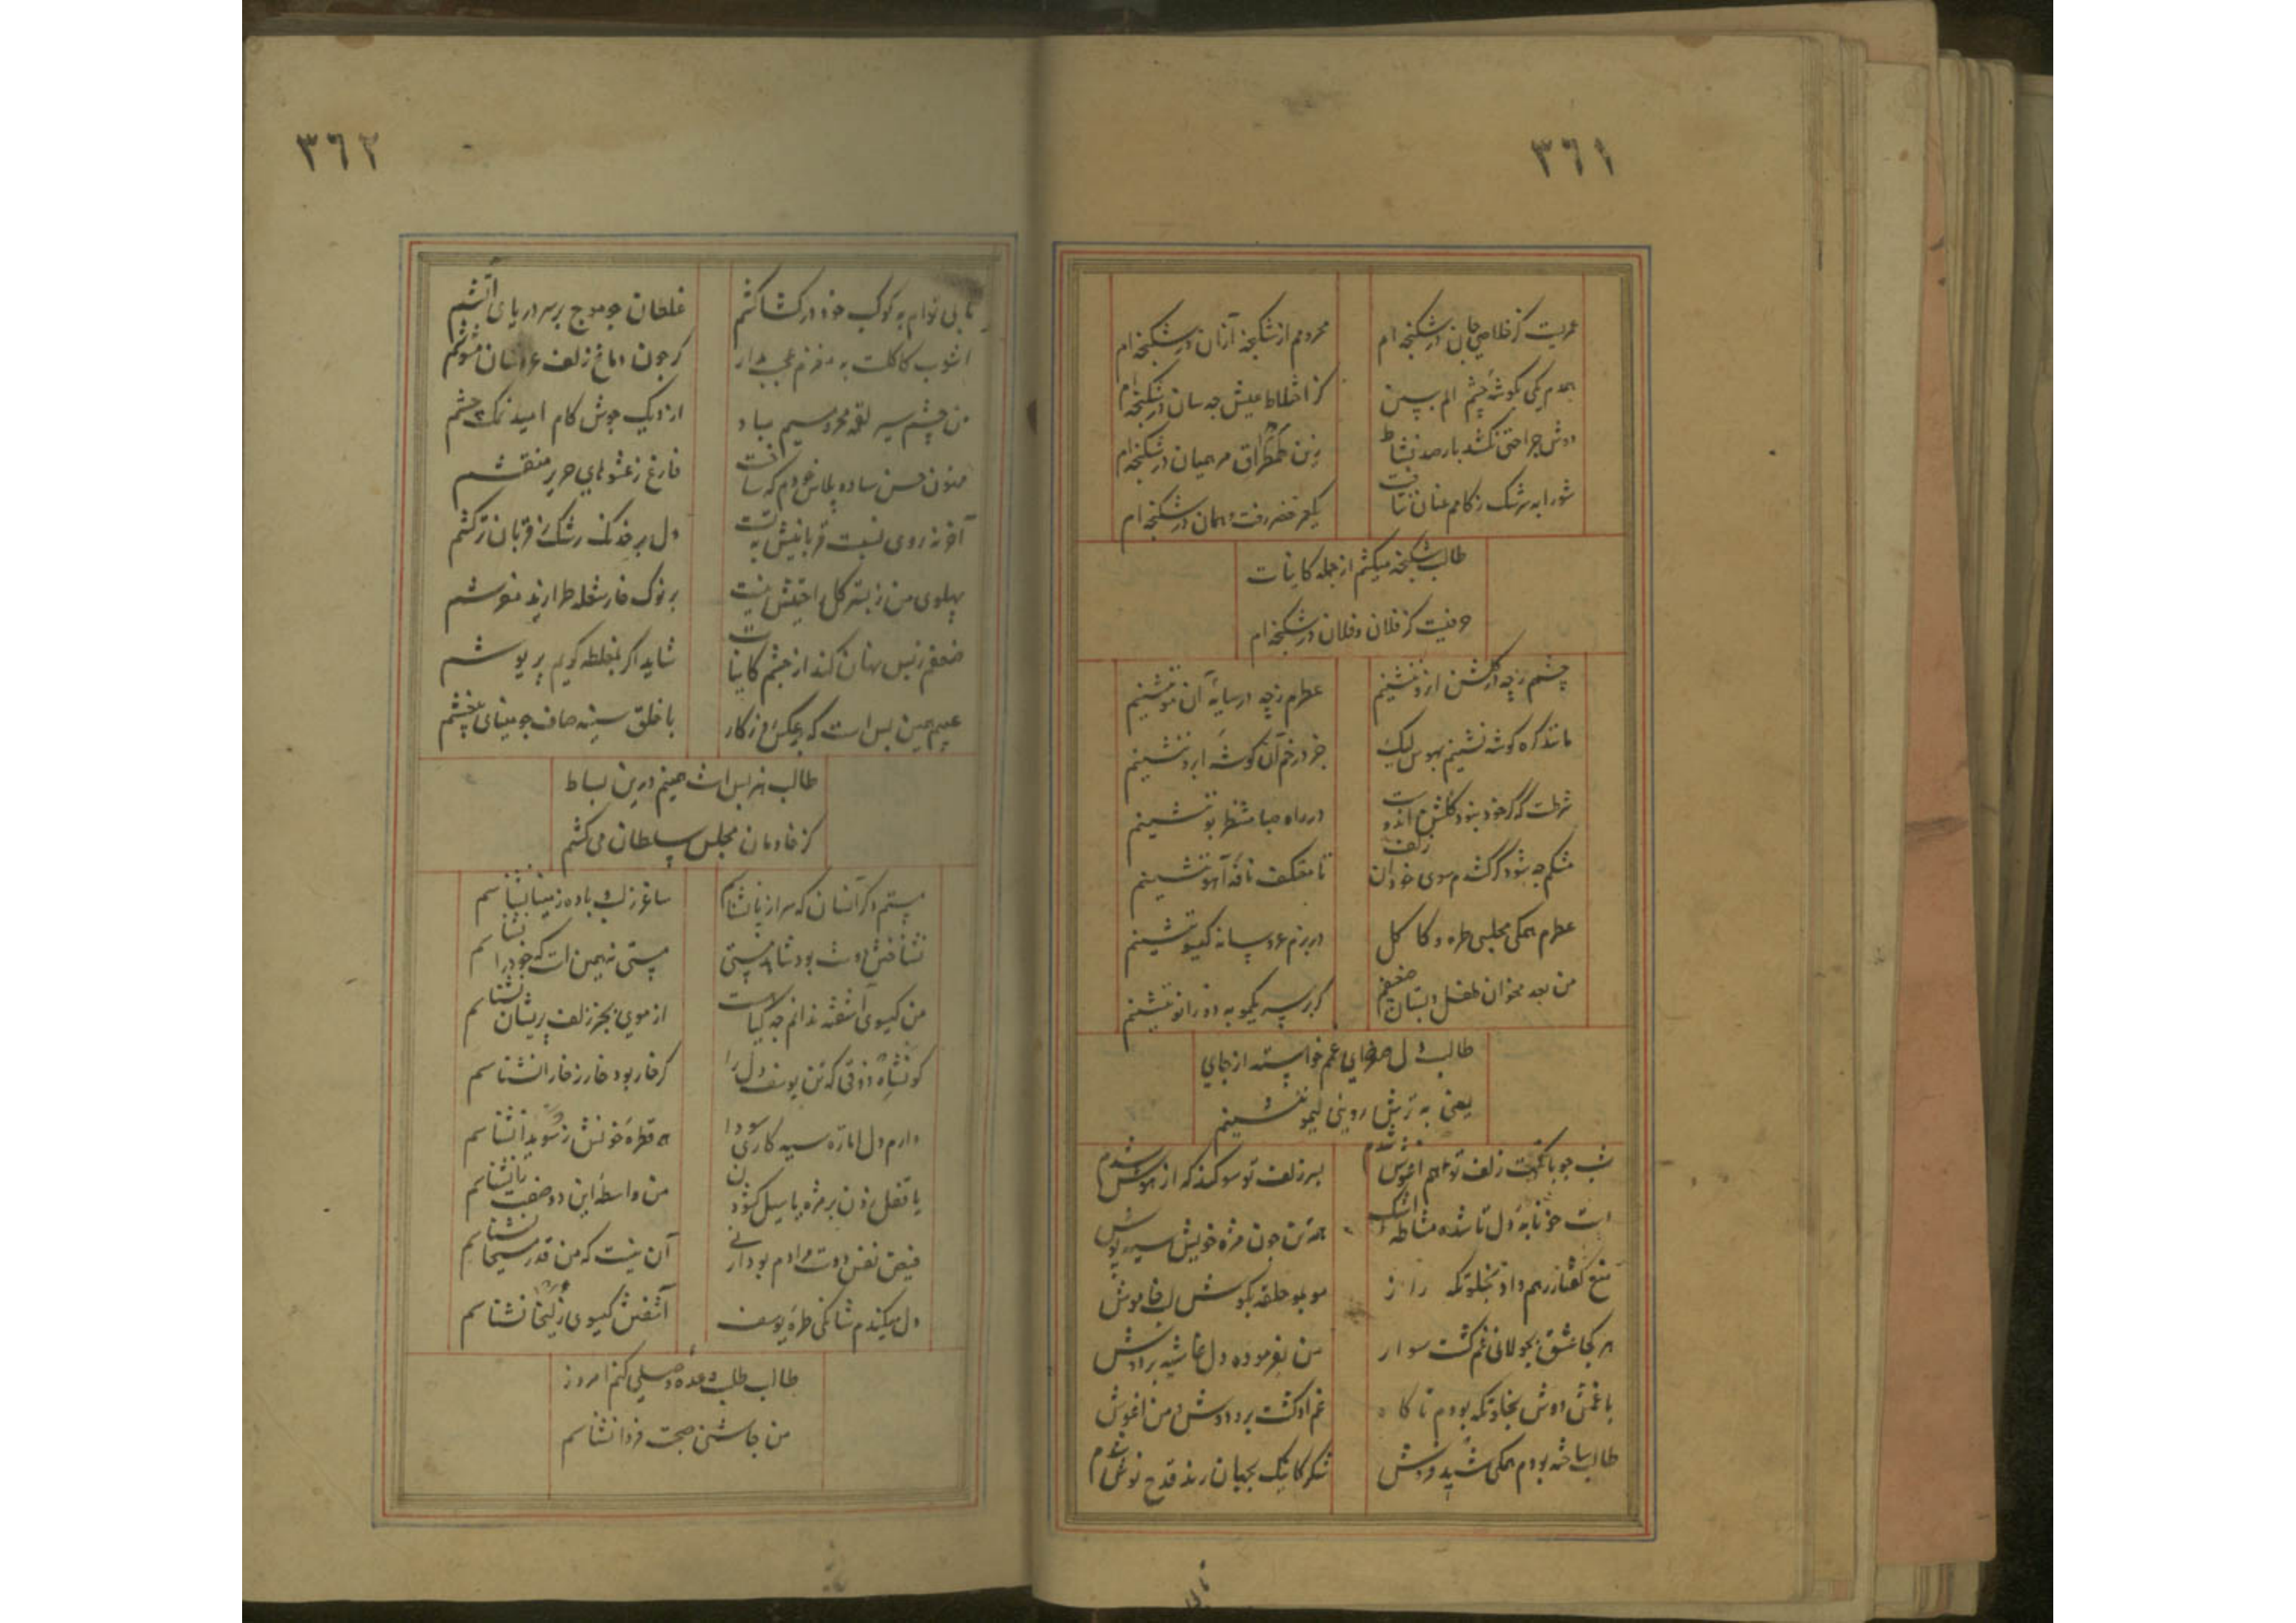 ٣٦١
عمریست کز خلاصی جان در شکنجه ام
محرومم از شکنجه ازان در شکنجه ام
همدم یکی بگوشه چشم الم ببین
کز اختلاط عیش چه سان در شکنجه ام
دوش جراحتی نکشد بار صد نشاط
زین طمطراق مرهمیان در شکنجه ام
شورابه سرشک ز کامم عنان نتافت
عمر خضر رفت و همان در شکنجه ام
طالب شکنجه میکشم از جمله کاینات
حرفیست کز فلان و فلان در شکنجه ام
چشمم ز چه در گلشن ازو ننشینم
عطرم ز چه در سایه آن مو ننشینم
مانند گره گوشه نشینم بهوس لیک
جز در خم آن گوشه ابرو ننشینم
شرطست که گر خود بود گلشن اندوه
در راه صبا منتظر بو ننشینم
مشکم چه شود گر کشدم سوی خود آن زلف
تا معتکف نافه آهو ننشینم
عطرم همگی مجلسی طره و کاکل
در بزم عروسانه گیسو ننشینم
من بعد مخوان طفل دبستان ضعیفم
گر بر سر یکمو به دو زانو ننشینم
طالب دل صفرایی غم خواسته از جای
یعنی به ترش رویی لیمو ننشینم
شب چو با نکهت زلف تو هم آغوش شدم
بسر زلف تو سوگند که از هوش شدم
است خونابه دل تا شده مشاطه اشک
همه تن چون مژه خویش سیه پوش
منع گفتار رهم داد بخلوتگه راز
مو بمو حلقه بگوش لب خاموش
هر کجا عشق بجولانی غم گشت سوار
من نفرموده دل غاشیه بر دوش
با غمش دوش بخلوتگه بودم ناگاه
غم او گشت بر و دوش و من آغوش
طالب ساخته بودم همگی شید فروش
شکر کاینک بجهان رند قدح نوش شدم
٣٦٢
تا بی نوا به کوکب خود در کشاکشم
غلطان چو موج بر سر دریای آتشم
آشوب کاکلت به مغزم عجب مدار
کز چون دماغ زلف عروسان مشوشم
من چشم سیر لقمه محرومیم مباد
از دیگ جوش کام امید نمک چشم
ممنون حسن ساده پلاس خودم که ساخت
فارغ ز عشوهای حریر منقشم
آخر نه روی نسبت قربانیش به تست
دل بر خدنگ رشک ز قربان ترکشم
پهلوی من ز بستر گل راحتیش نیست
بر نوک خار شعله طرازید مفرشم
ضعفم ز بس نهان کند از چشم کاینات
شاید اگر بغلطه گویم پریوشم
عیبم همین بس است که بر عکس روزگار
با خلق سینه صاف چو مینای بیغشم
طالب هنر بس است همینم درین بساط
کز خادمان مجلس سلطان می کشم
مستم دگر آنسان که سر از پا نشناسم
ساغر ز لب باده ز مینا نشناسم
نشناختن دوست بود شاهد مستی
مستی نه همین است که خود را نشناسم
من گیسوی آشفته ندانم چه گیاهست
از موی بجز زلف پریشان نشناسم
کو نشاه ذوقی که تن یوسف دل را
گر خار بود خار ز خارا نشناسم
دارم دل اماره سیه کاری سودا
هر قطره خونش ز سویدا نشناسم
یا قفل زدن بر مژه یا سیل گشودن
من واسطه این دو صفت را نشناسم
فیض نفس دوست مرادم بود ار نی
آن نیست که من قدر مسیحا نشناسم
دل میکندم شانگی طره یوسف
آشفتن گیسوی زلیخا نشناسم
طالب طلب وعده وصلی کنم امروز
من چاشنی صحبت فردا نشناسم